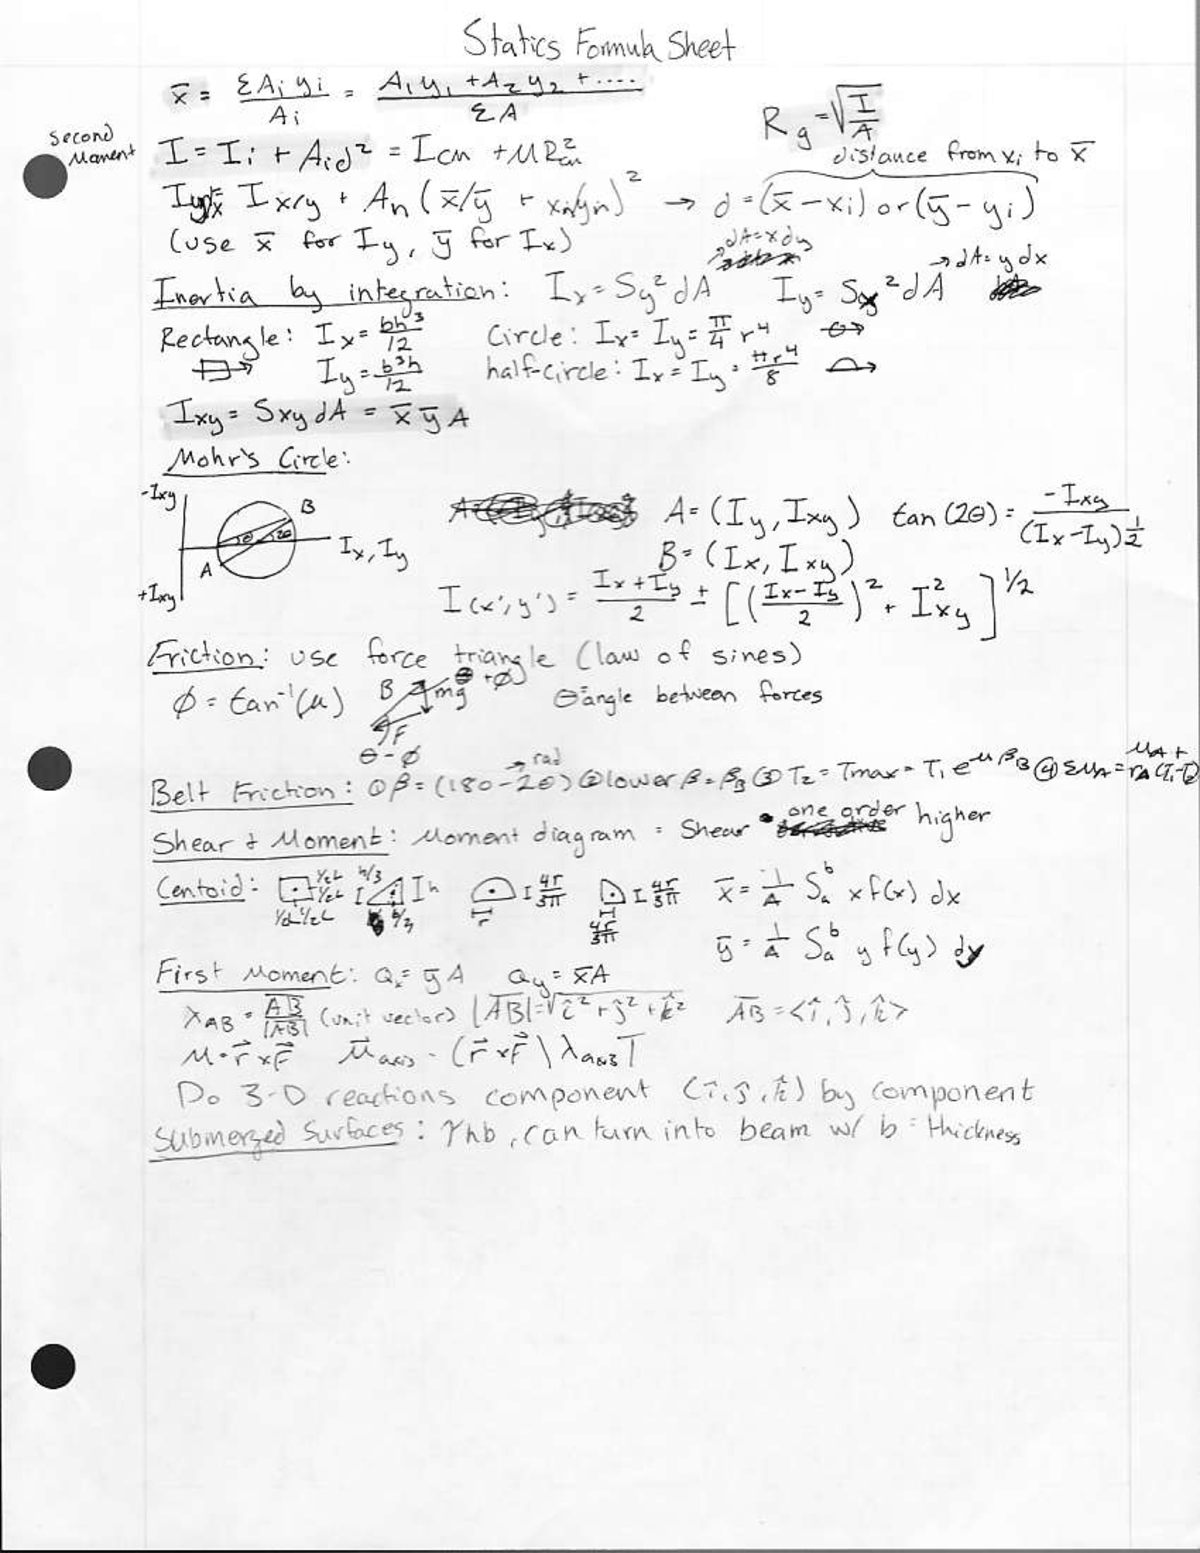 Statics Formula Sheet
x̄ = ΣAiyi / Ai = A1y1 + A2y2 + .... / ΣA
Rg = √(I/A)
Second Moment
I = Ii + Aid² = Icm + MR²cm
distance from xi to x̄
Ix/y + An (x̄/ȳ + xn/yn)² → d = (x̄ - xi) or (ȳ - yi)
(use x̄ for Iy, ȳ for Ix)
→ dA = x dy
→ dA = y dx
Inertia by integration: Ix = Sy² dA Iy = Sx² dA
Rectangle: Ix = bh³/12 Circle: Ix = Iy = π/4 r⁴
Iy = b³h/12 half-circle: Ix = Iy = πr⁴/8
Ixy = Sxy dA = x̄ ȳ A
Mohr's Circle:
-Ixy
B
θ 2θ
Ix, Iy
A
+Ixy
A = (Iy, Ixy) tan (2θ) = -Ixy / (Ix - Iy)½
B = (Ix, Ixy)
I(x', y') = Ix + Iy / 2 ± [(Ix - Iy / 2)² + I²xy]^1/2
Friction: use force triangle (law of sines)
φ = tan⁻¹(μ) B mg +φ θ = angle between forces
F
θ - φ
→ rad
Belt Friction: ① β = (180 - 2θ) ② lower β = βB ③ T2 = Tmax = T1 e^μβB ④ ΣMA = MA +
Shear & Moment: Moment diagram = Shear one order higher
Centoid: ½L ½L h/3 h 4r/3π 4r/3π x̄ = 1/A Sₐᵇ x f(x) dx
½L ½L b/3 r 4r/3π ȳ = 1/A Sₐᵇ y f(y) dy
First Moment: Qx = ȳA Qy = x̄A
λAB = AB / |AB| (unit vector) |AB| = √(î² + ĵ² + k̂²) AB = <î, ĵ, k̂>
M = r × F Maxis = (r × F)
Do 3-D reactions component (î, ĵ, k̂) by component
Submerged Surfaces: γhb, can turn into beam w/ b = thickness